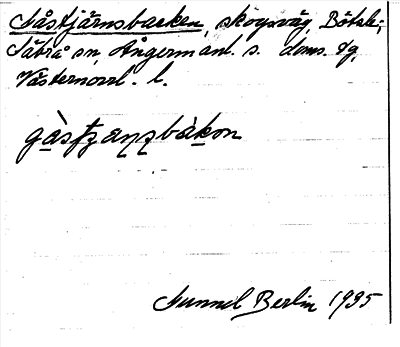 Gåstjärnsbacken, skogsväg, Bölsle;
Säbrå sn, Ångermanl. s. doms.sg,
Västernorrl. l.
gàstʒaɳʐbàkon
Gunnel Berlin 1935